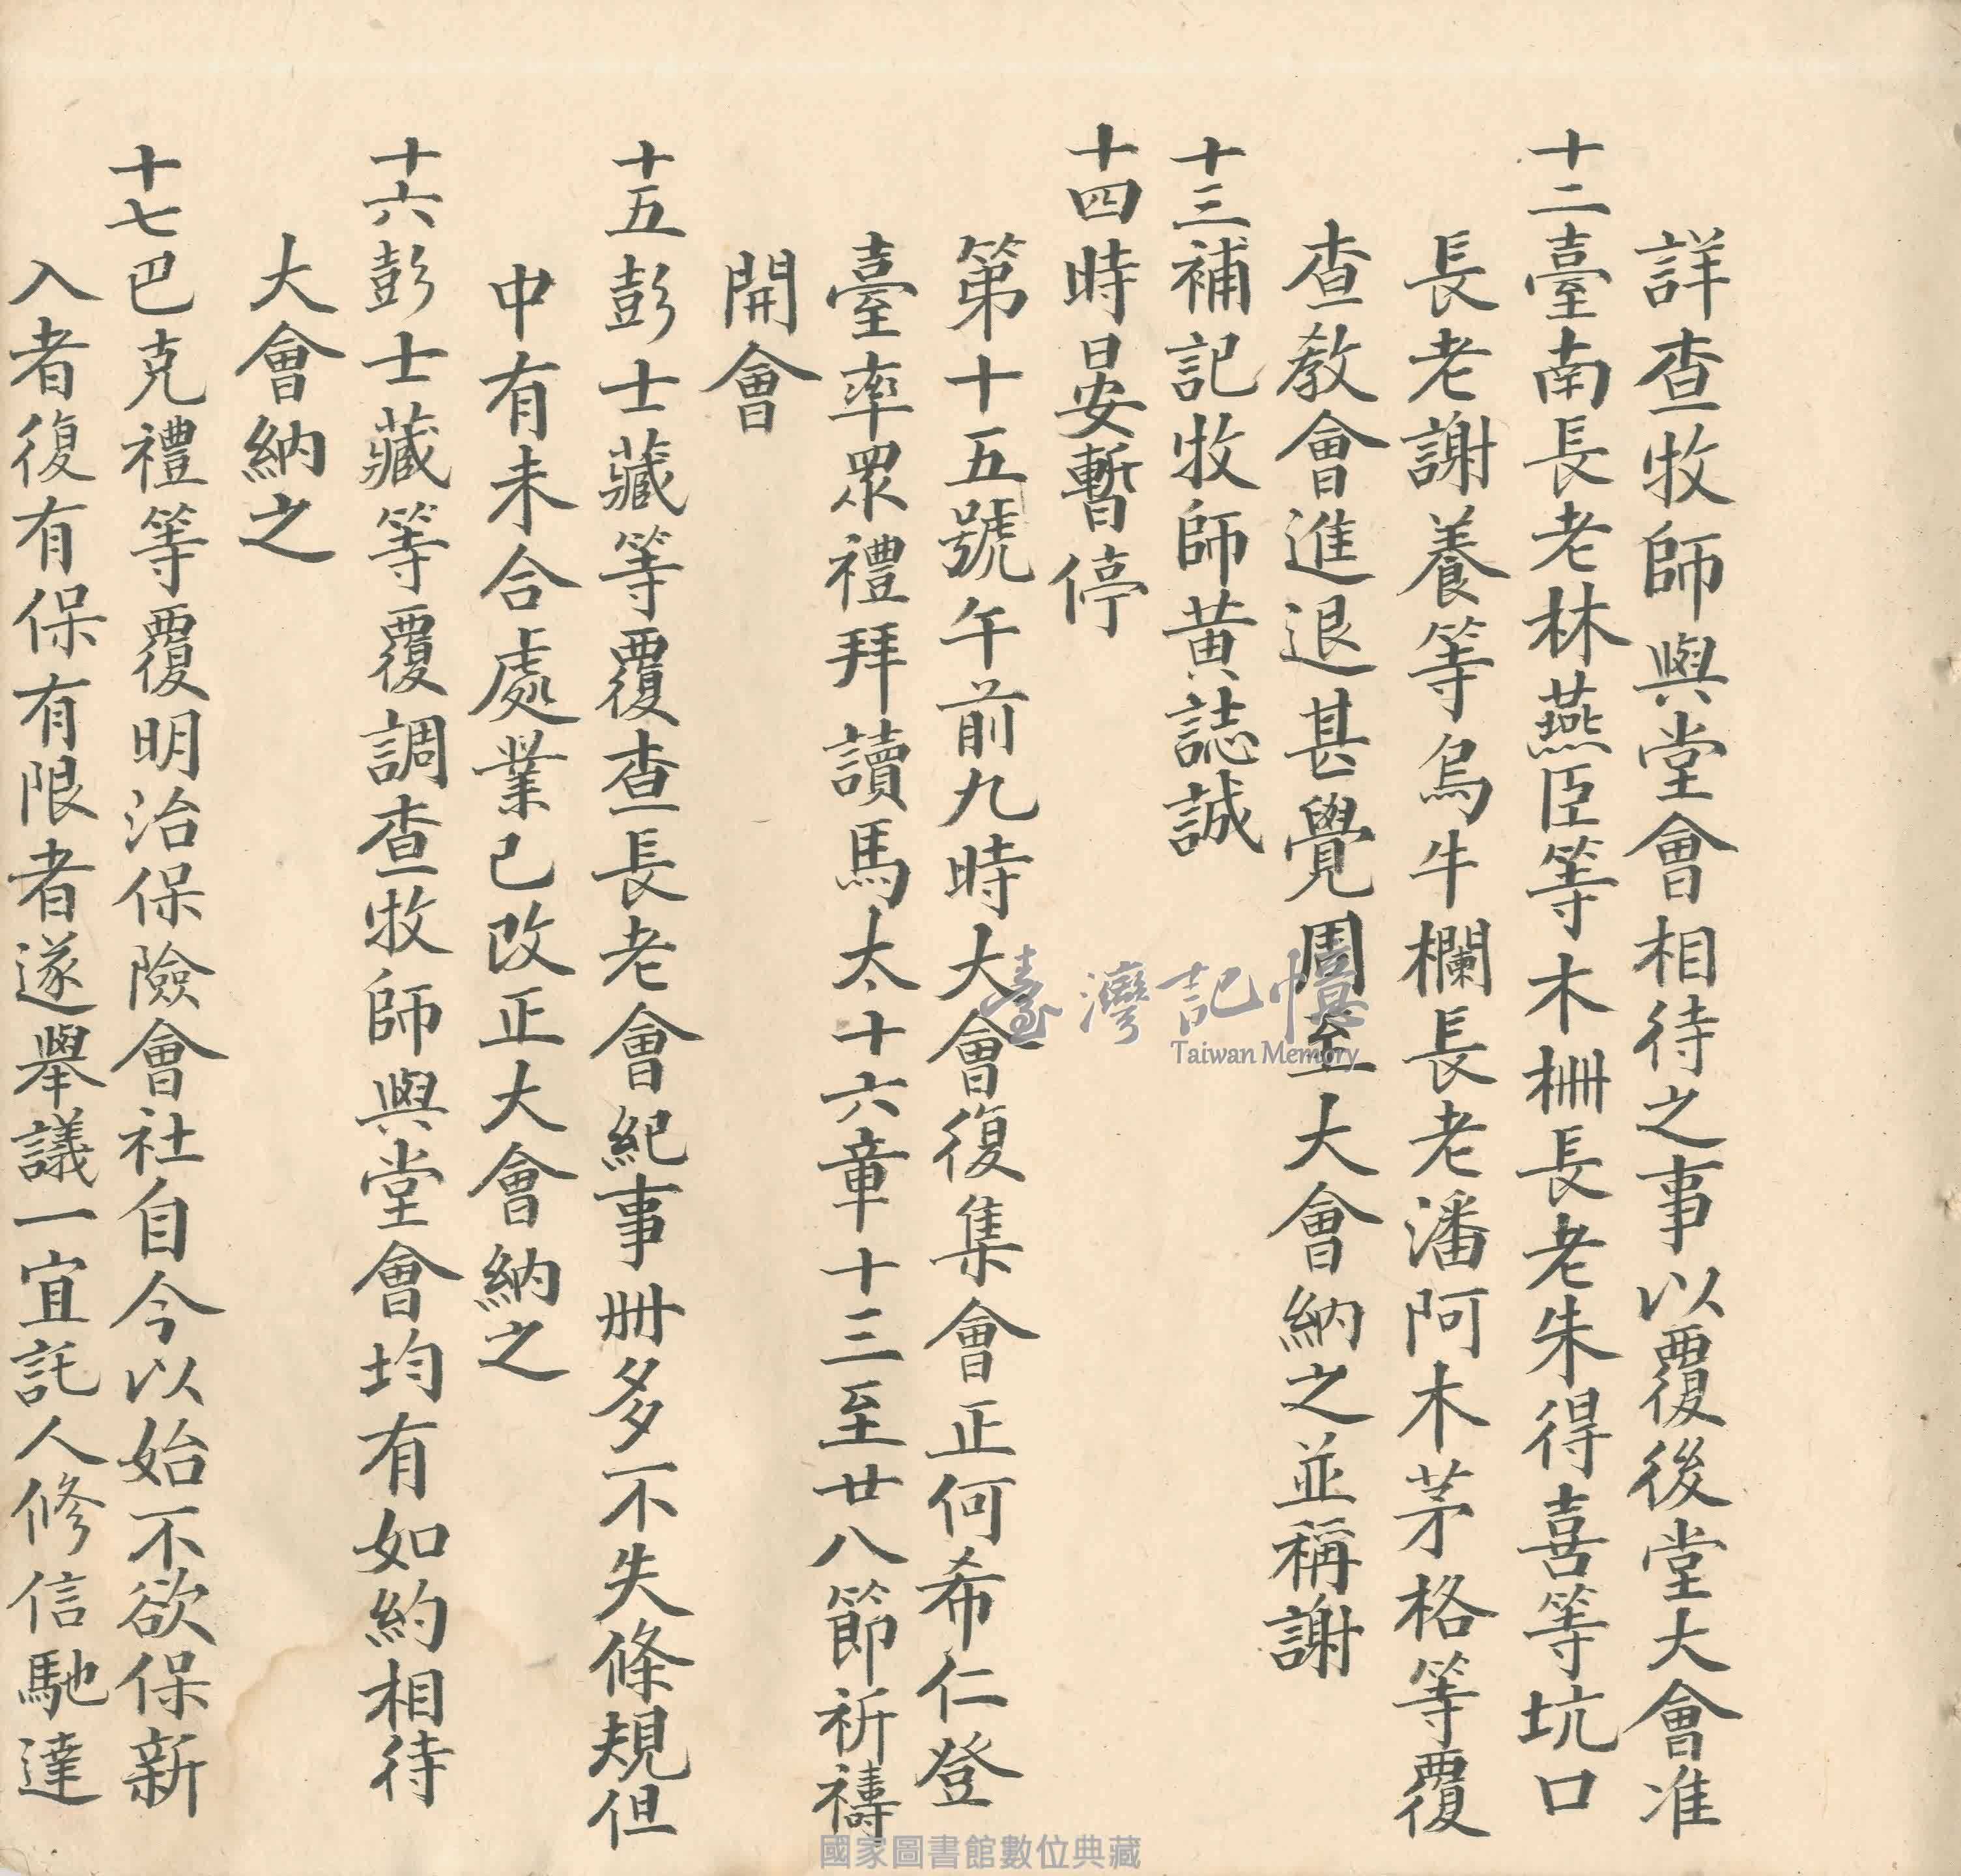 詳查牧師與堂會相待之事以覆後堂大會准
十二臺南長老林燕臣等木柵長老朱得喜等坑口
長老謝養等烏牛欄長老潘阿木茅格等覆
查教會進退甚覺周至大會納之並稱謝
十三補記牧師黃誌誠
十四時晏暫停
第十五號午前九時大會復集會正何希仁登
臺率眾禮拜讀馬太十六章十三至廿八節祈禱
開會
十五彭士藏等覆查長老會紀事冊多不失條規但
中有未合處業已改正大會納之
十六彭士藏等覆調查牧師與堂會均有如約相待
大會納之
十七巴克禮等覆明治保險會社自今以始不欲保新
入者復有保有限者遂舉議一宜託人修信馳達
臺灣記憶
Taiwan Memory
國家圖書館數位典藏